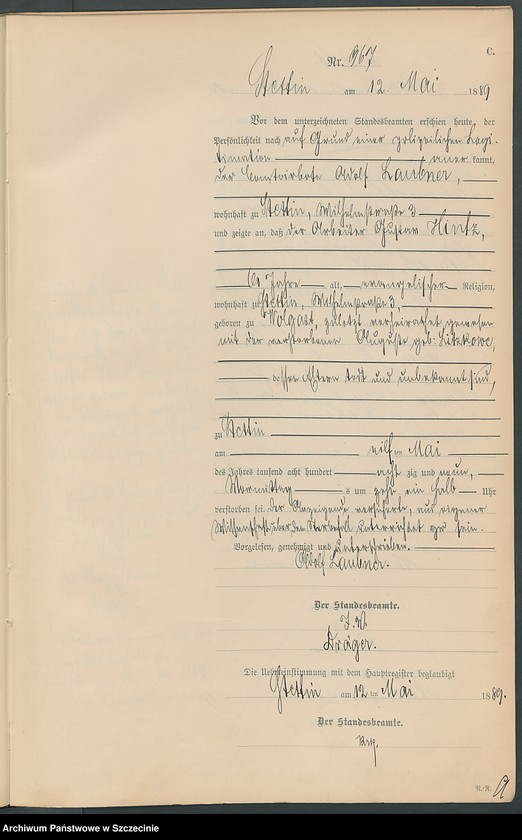 C.
Nr. 967
Stettin am 12. Mai 1889
Vor dem unterzeichneten Standesbeamten erschien heute, der
Persönlichkeit nach auf Grund einer polizeilichen Legi-
timation anerkannt,
der Comtoirbote Adolf Laubner,
wohnhaft zu Stettin, Wilhelmstraße 3
und zeigte an, daß der Arbeiter Gustav Hintz,
60 Jahre alt, evangelischer Religion,
wohnhaft zu Stettin, Wilhelmstraße 3,
geboren zu Wolgast, zuletzt verheirathet gewesen
mit der verstorbenen Auguste geb: Lützkowe,
dessen Eltern todt und unbekannt sind,
zu Stettin
am eilften Mai
des Jahres tausend acht hundert achtzig und neun,
Vormittags um zehn ein halb Uhr
verstorben sei. Der Anzeigende versicherte, aus eigener
Wissenschaft über den Sterbefall unterrichtet zu sein.
Vorgelesen, genehmigt und unterschrieben.
Adolf Laubner.
Der Standesbeamte.
J. V.
Dräger.
Die Uebereinstimmung mit dem Hauptregister beglaubigt
Stettin am 12ten Mai 1889.
Der Standesbeamte.
Archiwum Państwowe w Szczecinie